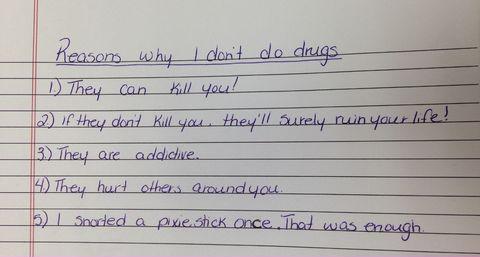 Reasons why I don't do drugs
1.) They can kill you!
2) If they don't kill you, they'll surely ruin your life!
3.) They are addictive.
4) They hurt others around you.
5) I snorted a pixie stick once. That was enough.